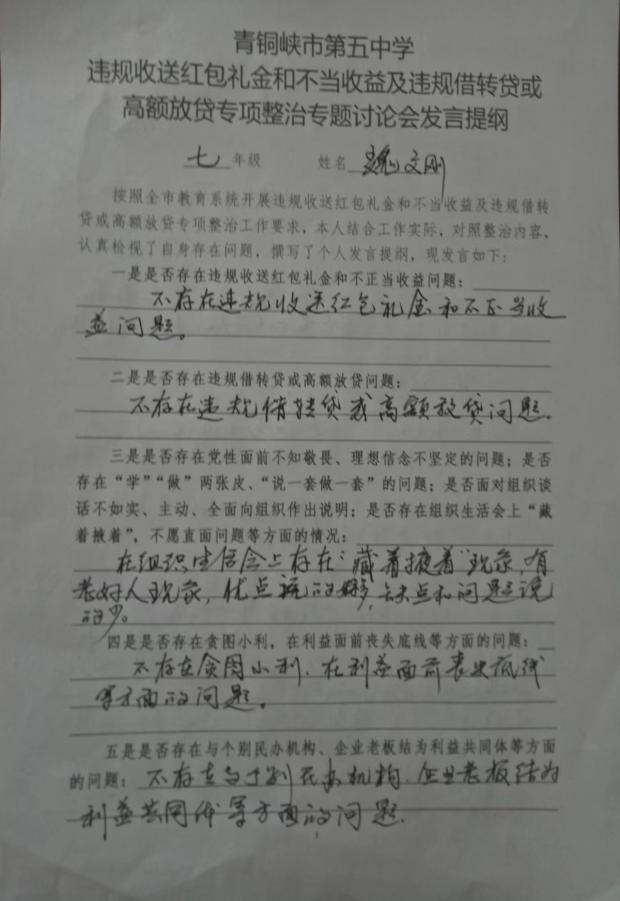 青铜峡市第五中学
违规收送红包礼金和不当收益及违规借转贷或
高额放贷专项整治专题讨论会发言提纲
七 年级 姓名 魏文刚
按照全市教育系统开展违规收送红包礼金和不当收益及违规借转
贷或高额放贷专项整治工作要求，本人结合工作实际，对照整治内容，
认真检视了自身存在问题，撰写了个人发言提纲，现发言如下：
一是是否存在违规收送红包礼金和不正当收益问题：
不存在违规收送红包礼金和不正当收
益问题。
二是是否存在违规借转贷或高额放贷问题：
不存在违规借转贷或高额放贷问题。
三是是否存在党性面前不知敬畏、理想信念不坚定的问题；是否
存在“学”“做”两张皮、“说一套做一套”的问题；是否面对组织谈
话不如实、主动、全面向组织作出说明；是否存在组织生活会上“藏
着掖着”，不愿直面问题等方面的情况：
在组织生活会上存在“藏着掖着”现象，有
老好人现象，优点说的多，缺点和问题说
的少。
四是是否存在贪图小利，在利益面前丧失底线等方面的问题：
不存在贪图小利，在利益面前丧失底线
等方面的问题。
五是是否存在与个别民办机构、企业老板结为利益共同体等方面
的问题：不存在与个别民办机构、企业老板结为
利益共同体等方面的问题.
1